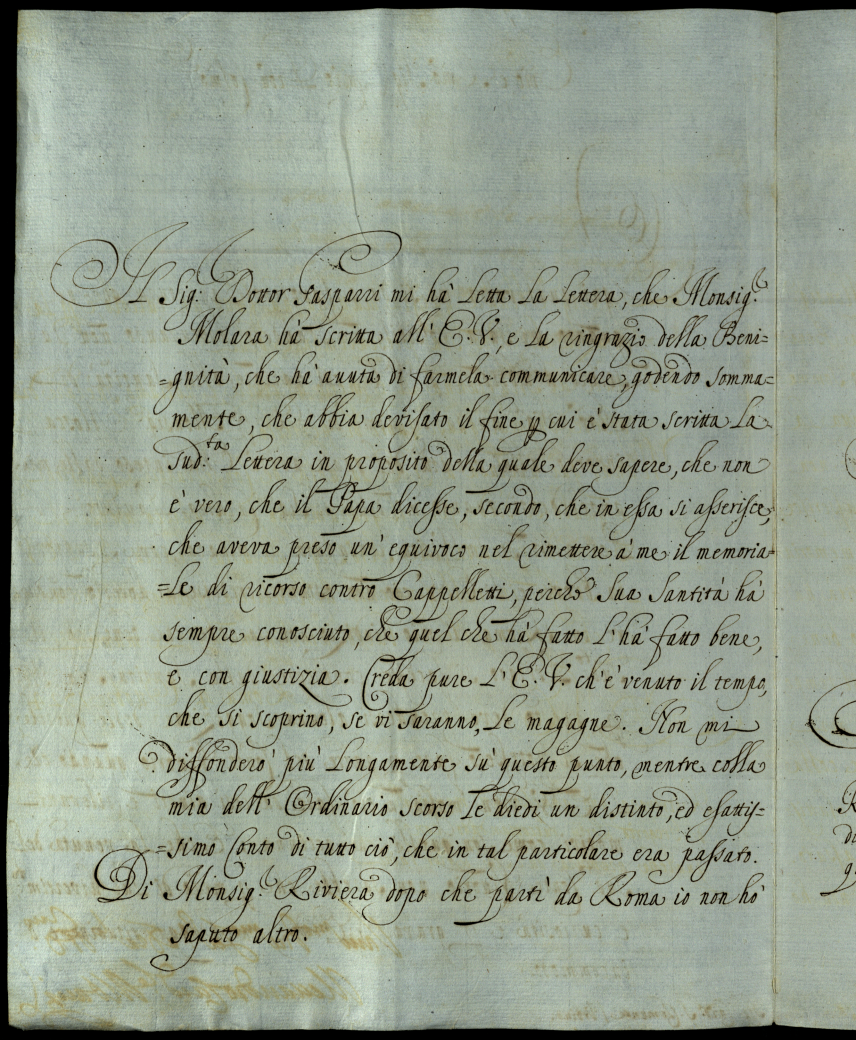 Il Sig.r Dottor Gasparri mi hà Letta La Lettera, che Monsig.r
Molara hà scritta all' E. V., e La ringrazio della Beni=
=gnità, che hà avuta di farmela communicare, godendo somma=
mente, che abbia devisato il fine p cui è stata scritta La
sud.ta Lettera in proposito della quale deve sapere, che non
è vero, che il Papa dicesse, secondo, che in essa si asserisce,
che aveva preso un' equivoco nel rimettere à me il memoria=
=Le di ricorso contro Cappelletti, perche Sua Santità hà
sempre conosciuto, che quel che hà fatto l' hà fatto bene,
e con giustizia. Creda pure L' E. V. ch' è venuto il tempo,
che si scoprino, se vi saranno, Le magagne. Non mi
diffonderò più Longamente sù questo punto, mentre colla
mia dell' Ordinario scorso Le diedi un distinto, ed esattis=
=simo Conto di tutto ciò, che in tal particolare era passato.
Di Monsig.r Riviera dopo che partì da Roma io non hò
saputo altro.